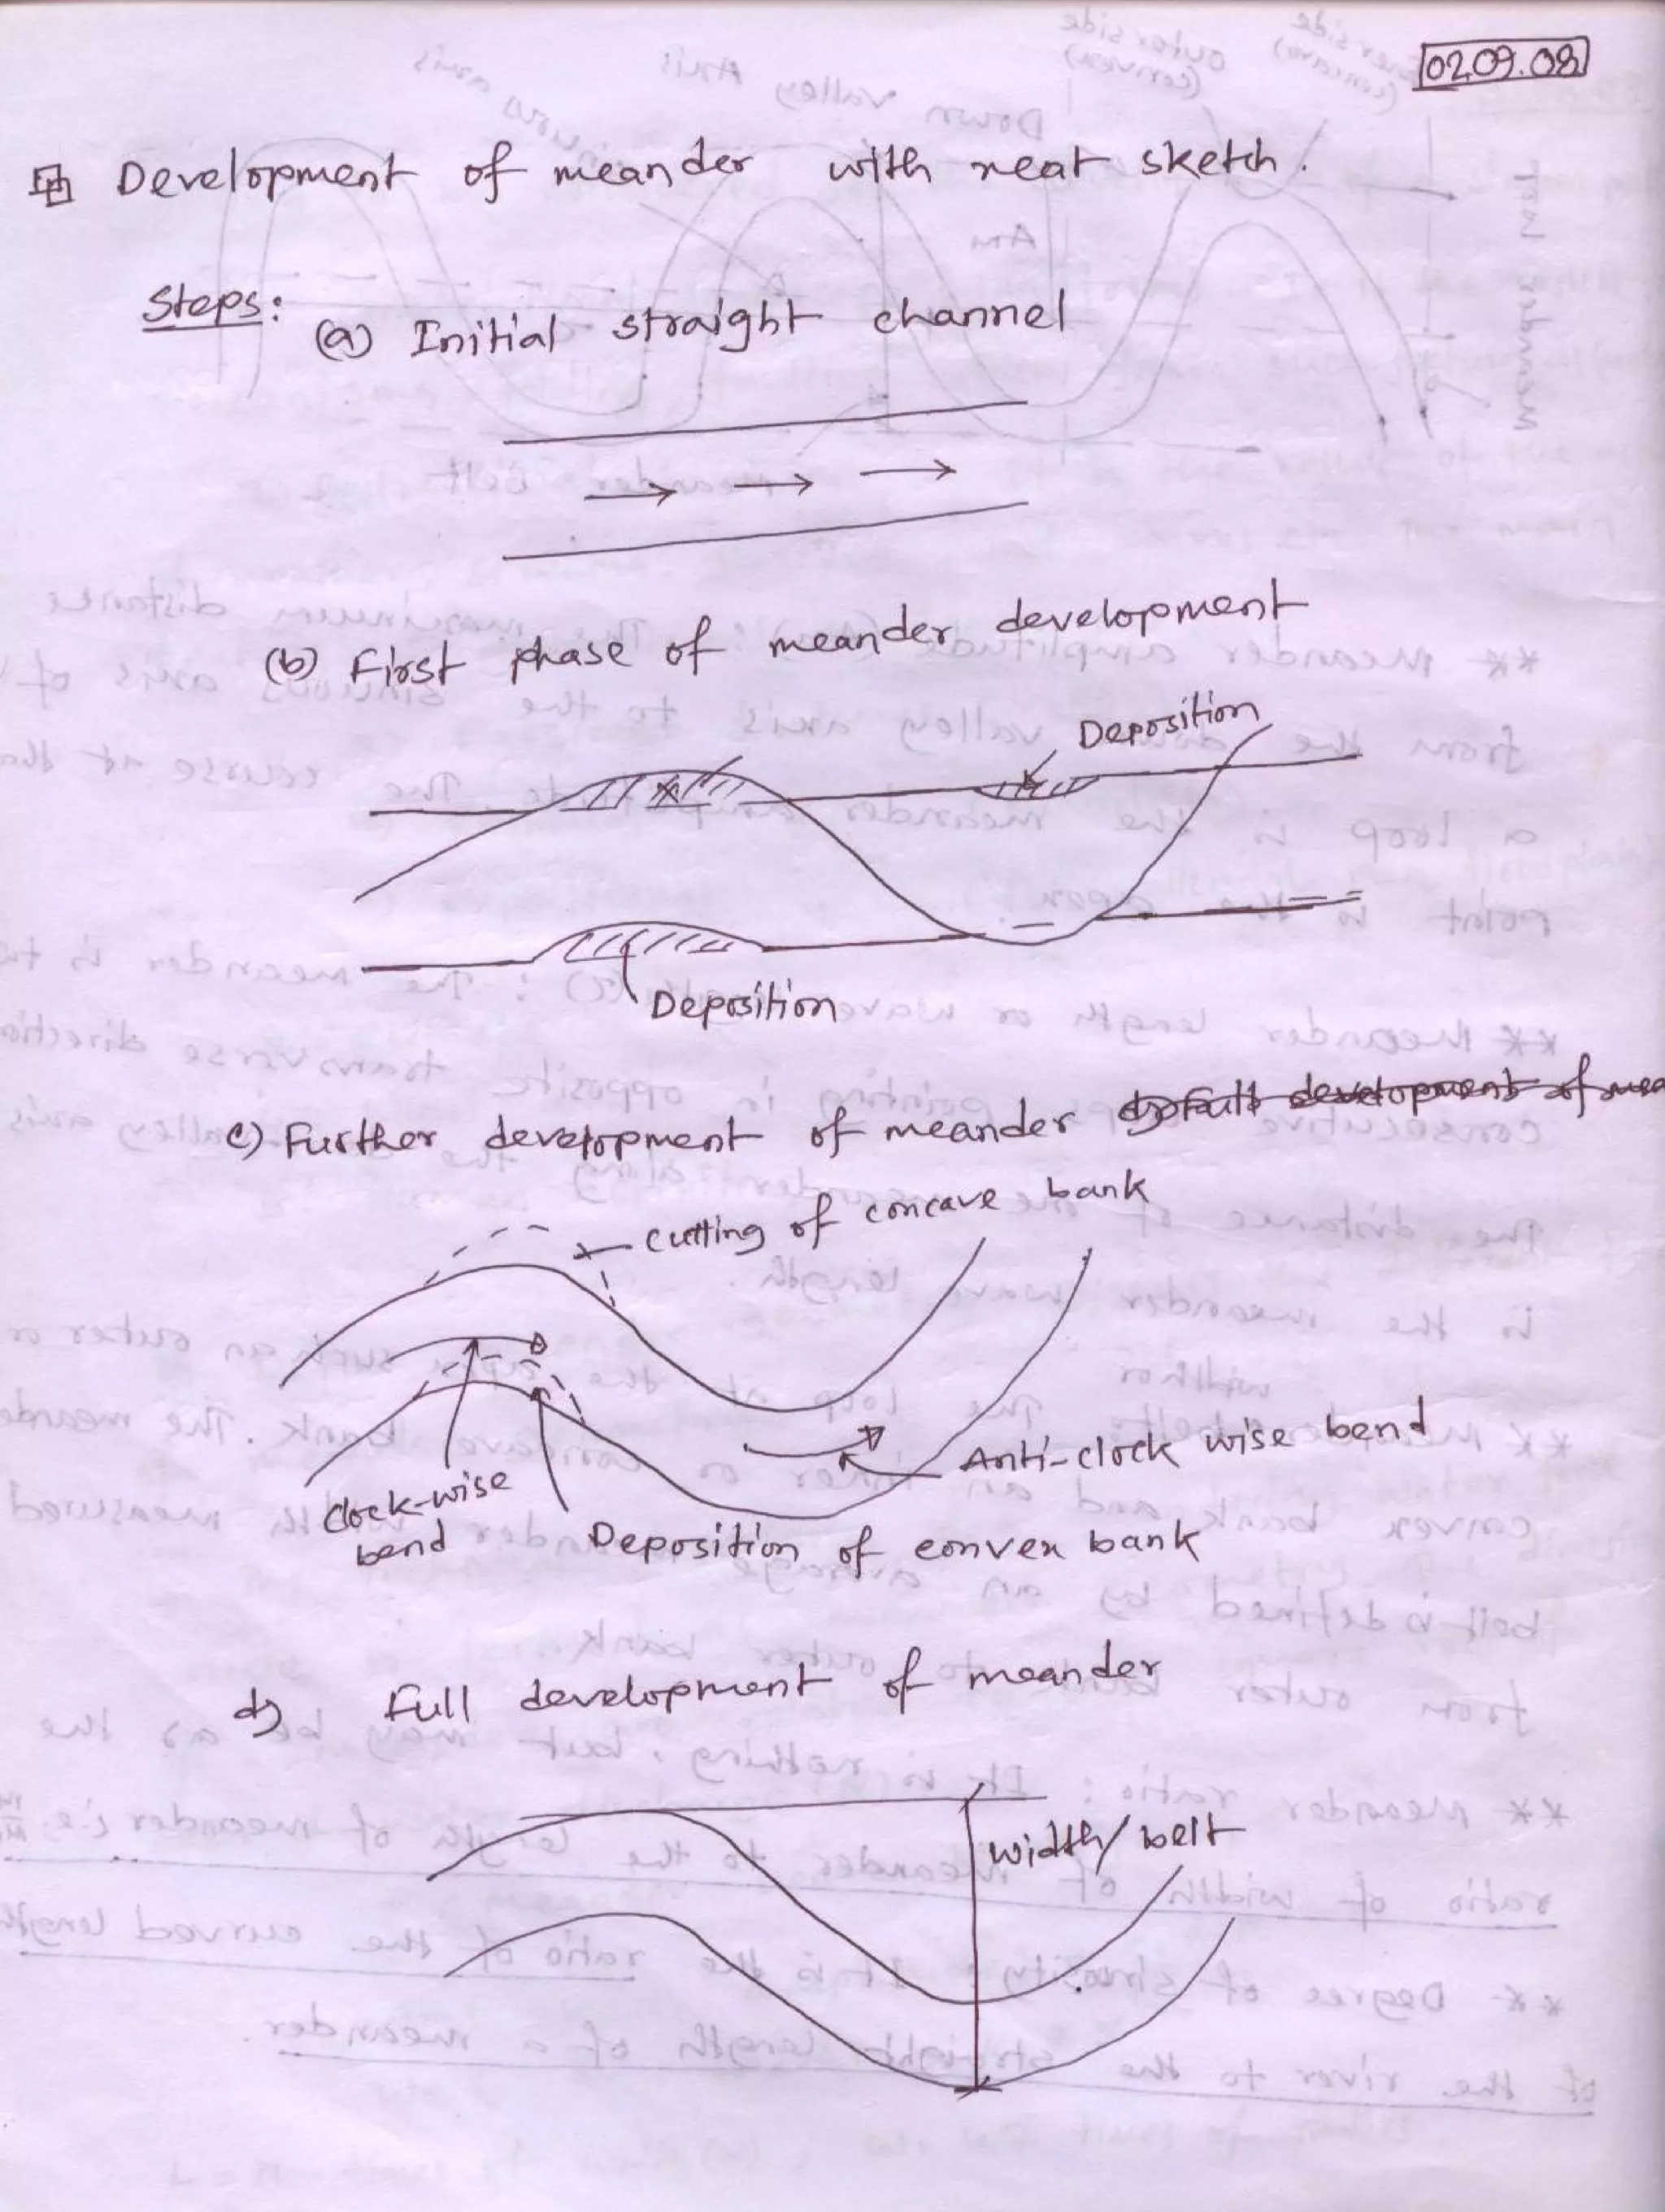 02.09.08
Development of meander with neat sketch.
Steps:
(a) Initial straight channel
(b) First phase of meander development
Deposition
Deposition
c) Further development of meander d) Full development of mea
cutting of concave bank
Anti-clock wise bend
Clock-wise
bend
Deposition of convex bank
d) Full development of meander
width/belt